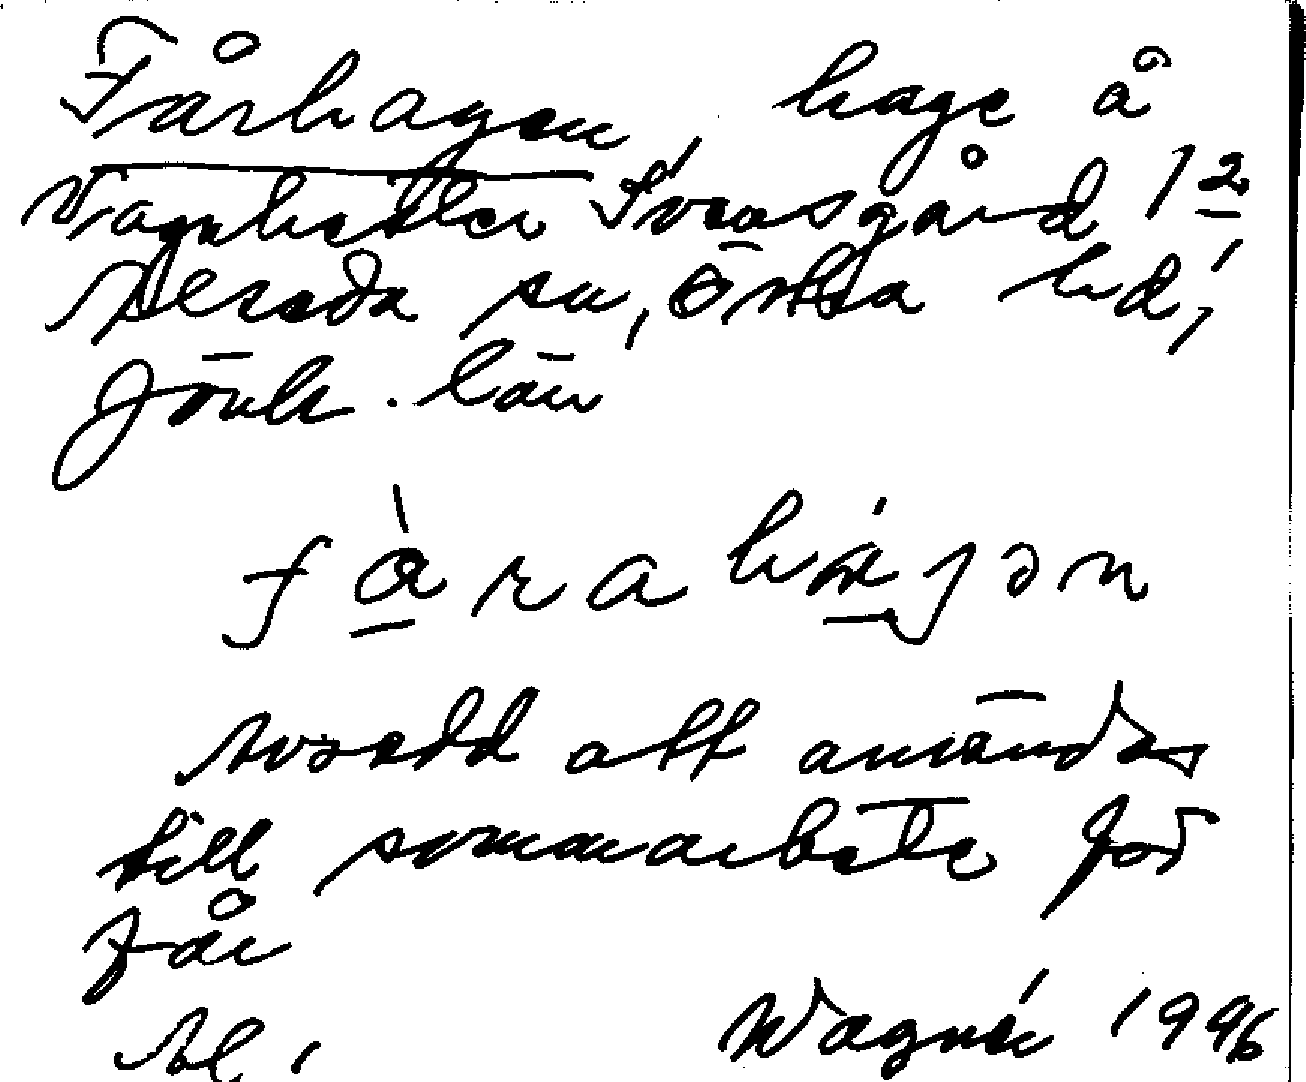 Fårhagen, hage å
Vagnhester Svensgård 1 2
Alseda sn, Östra hd,
Jönk. län
fàrahàjən
Avsedd att användas
till sommarbete för
får
Al. Wagnér 1996